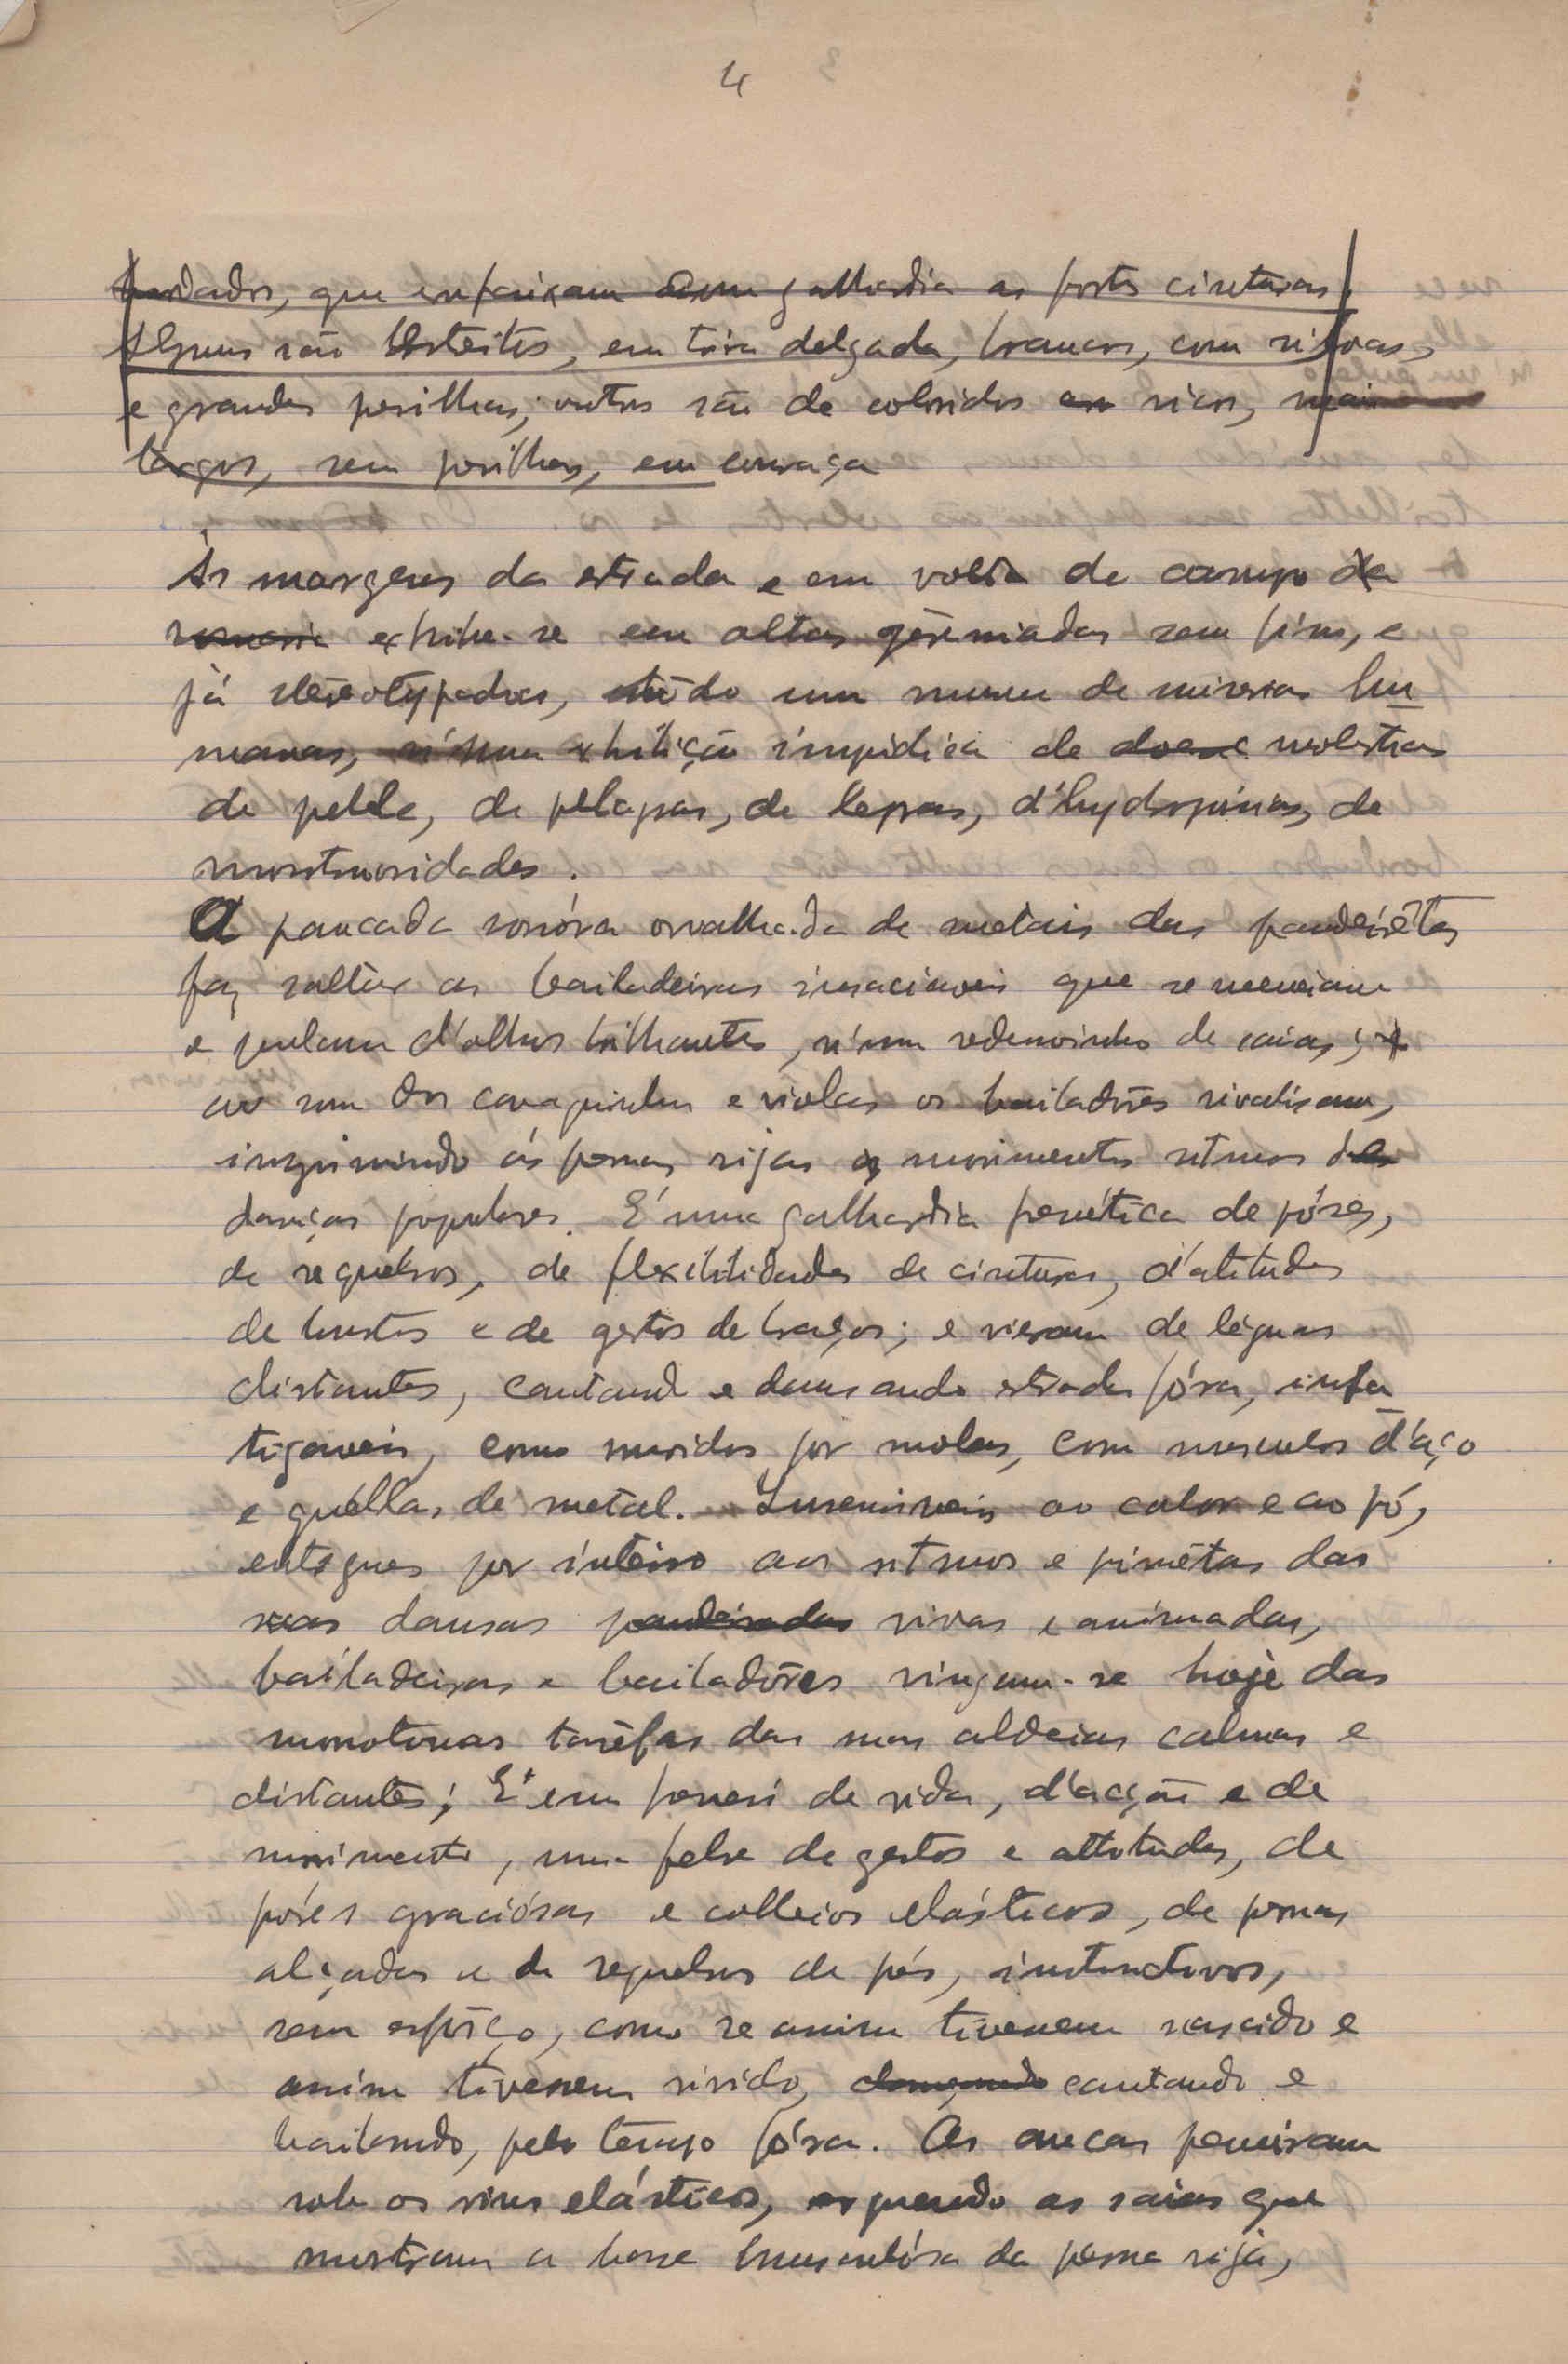 4
bordados, que enfaixam com galhardia as fortes cinturas.
Alguns são estreitos, em tira delgada, brancos, com riscas,
e grandes presilhas; outros são de coloridos ricos, mais
largos, sem presilhas, em couraça
Ás margens da estrada e em volta de campo da
romaria exhibe-se em altas gèremiadas sem fim, e
já stereotypadas, todo um museu de miserias hu
manas, n'uma exhibição impúdica de doenç molestias
de pelle, de pelagras, de lepras, d'hydropisias, de
monstruosidades.
A pancada sonóra orvalhada de metais das pandeirêtas
faz saltar as bailadeiras insaciaveis que se meneiam
e pulam d'olhos brilhantes, n'um redemoinho de saias; e
ao som dos cavaquinhos e violas os bailadôres rivalisam,
imprimindo ás pernas rijas os movimentos ritmos das
danças populares. É uma galhardia frenética de póses,
de requebros, de flexibilidades de cinturas, d'atitudes
de bustos e de gestos de braços; e vieram de léguas
distantes, cantando e dansando estrada fóra, infa
tigaveis, como movidos por molas, com musculos d'aço
e guéllas de metal. Insensiveis ao calor e ao pó,
entregues por inteiro aos ritmos e piruêtas das
suas dansas pandeiradas vivas e animadas,
bailadeiras e bailadôres vingam-se hoje das
monotonas tarèfas das suas aldeias calmas e
distantes; É um frenesi de vida, d'acção e de
movimento, uma febre de gestos e attitudes, de
póses graciósas e colleios elásticos, de pernas
alçadas e de requebros de pés, instinctivos,
sem esfôrço, como se assim tivessem nascido e
assim tivessem vivido, dançando cantando e
bailando, pelo tempo fóra. As ancas peneiram
sob os rins elásticos, erguendo as saias que
mostram a base musculósa da perna rija,